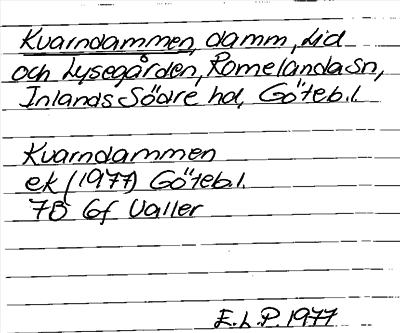 Kvarndammen, damm, Lid
och Lysegården, Romelanda sn,
Inlands Södre hd, Göteb.l.
Kvarndammen
ek (1977) Göteb.l.
7B 6f Valler
E.L.P. 1977